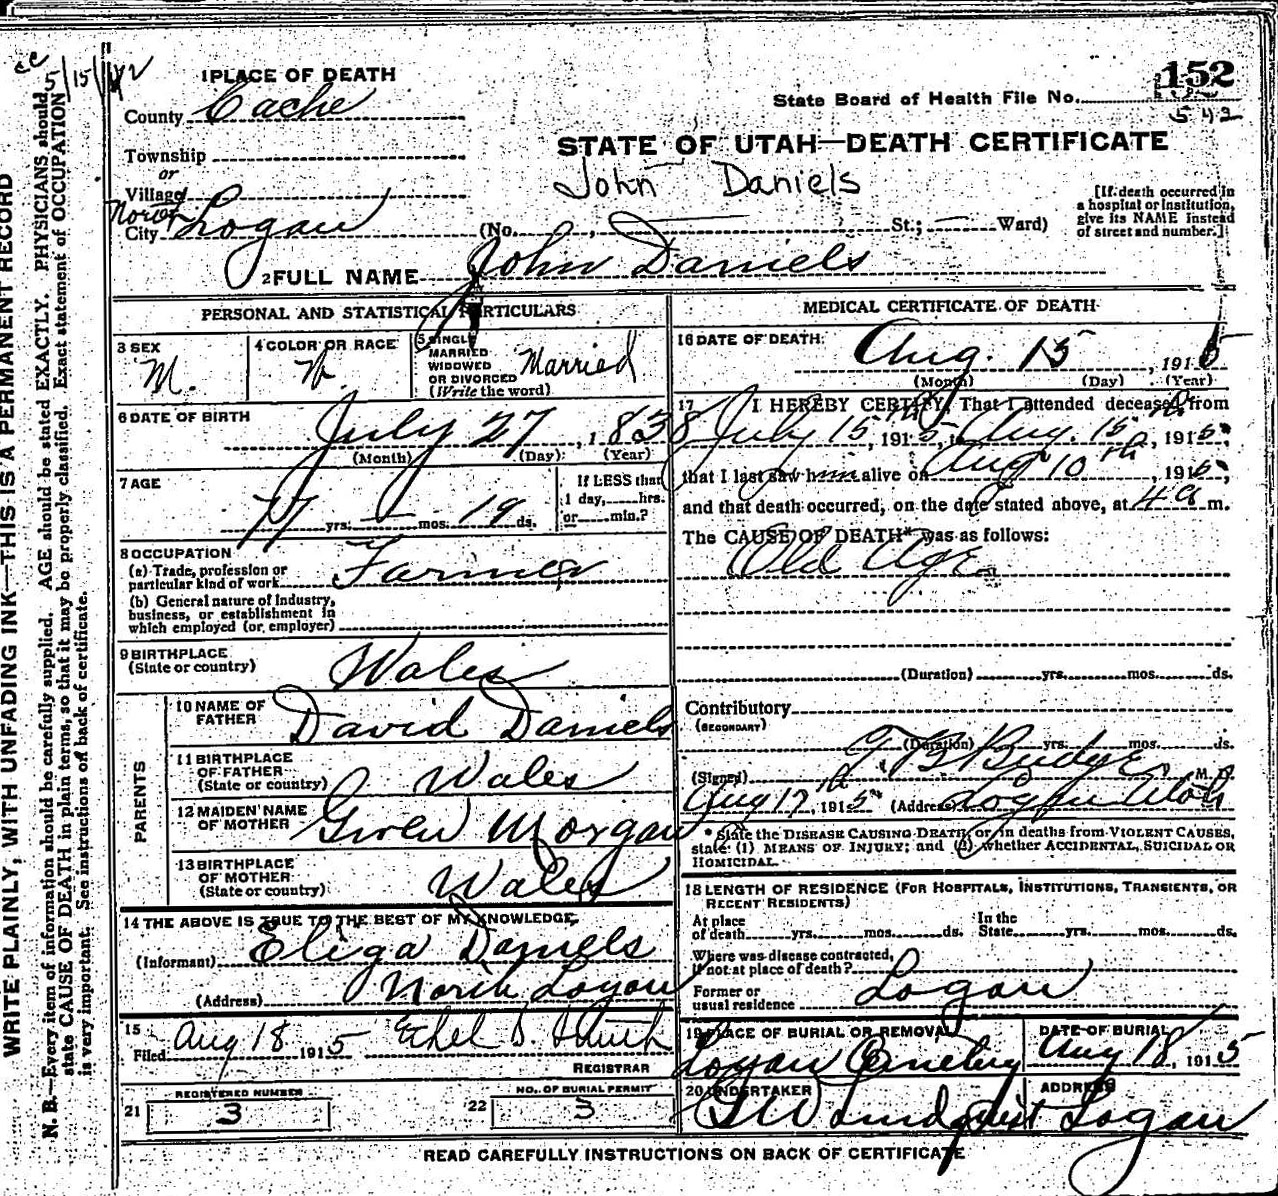 5/15/42
1 PLACE OF DEATH
152
State Board of Health File No.
542
County Cache
STATE OF UTAH—DEATH CERTIFICATE
Township
or
John Daniels
Village
North
City Logan (No. , St.; Ward)
[If death occurred in
a hospital or institution,
give its NAME instead
of street and number.]
2 FULL NAME John Daniels
PERSONAL AND STATISTICAL PARTICULARS
3 SEX
M.
4 COLOR OR RACE
W.
5 SINGLE
MARRIED
WIDOWED
OR DIVORCED
(Write the word)
Married
6 DATE OF BIRTH
July 27, 1838
(Month) (Day) (Year)
7 AGE
77 yrs. mos. 19 ds.
If LESS than
1 day, hrs.
or min.?
8 OCCUPATION
(a) Trade, profession or
particular kind of work Farmer
(b) General nature of Industry,
business, or establishment in
which employed (or employer)
9 BIRTHPLACE
(State or country) Wales
PARENTS
10 NAME OF
FATHER David Daniels
11 BIRTHPLACE
OF FATHER
(State or country) Wales
12 MAIDEN NAME
OF MOTHER Gwen Morgan
13 BIRTHPLACE
OF MOTHER
(State or country) Wales
14 THE ABOVE IS TRUE TO THE BEST OF MY KNOWLEDGE
(Informant) Eliga Daniels
(Address) North Logan
15
Filed Aug 18 1915 Ethel D.
REGISTRAR
REGISTERED NUMBER
21 3
NO. OF BURIAL PERMIT
22 3
MEDICAL CERTIFICATE OF DEATH
16 DATE OF DEATH:
Aug. 15, 1915
(Month) (Day) (Year)
17 I HEREBY CERTIFY, That I attended deceased from
July 15th, 1915, to Aug. 15th, 1915,
that I last saw him alive on Aug 10th, 1915,
and that death occurred, on the date stated above, at 4 a m.
The CAUSE OF DEATH* was as follows:
Old Age
(Duration) yrs. mos. ds.
Contributory
(SECONDARY)
(Duration) yrs. mos. ds.
(Signed) T. B. Budge, M. D.
Aug 17th, 1915 (Address) Logan Utah
* State the DISEASE CAUSING DEATH, or, in deaths from VIOLENT CAUSES,
state: (1) MEANS OF INJURY; and (2) whether ACCIDENTAL, SUICIDAL OR
HOMICIDAL.
18 LENGTH OF RESIDENCE (FOR HOSPITALS, INSTITUTIONS, TRANSIENTS, OR
RECENT RESIDENTS)
At place
of death yrs. mos. ds.
In the
State yrs. mos. ds.
Where was disease contracted,
if not at place of death?
Former or
usual residence Logan
19 PLACE OF BURIAL OR REMOVAL
Logan Cemetery
DATE OF BURIAL
Aug 18, 1915
20 UNDERTAKER
Lindquist
ADDRESS
Logan
READ CAREFULLY INSTRUCTIONS ON BACK OF CERTIFICATE
WRITE PLAINLY, WITH UNFADING INK—THIS IS A PERMANENT RECORD
N. B.—Every item of information should be carefully supplied. AGE should be stated EXACTLY. PHYSICIANS should
state CAUSE OF DEATH in plain terms, so that it may be properly classified. Exact statement of OCCUPATION
is very important. See instructions on back of certificate.